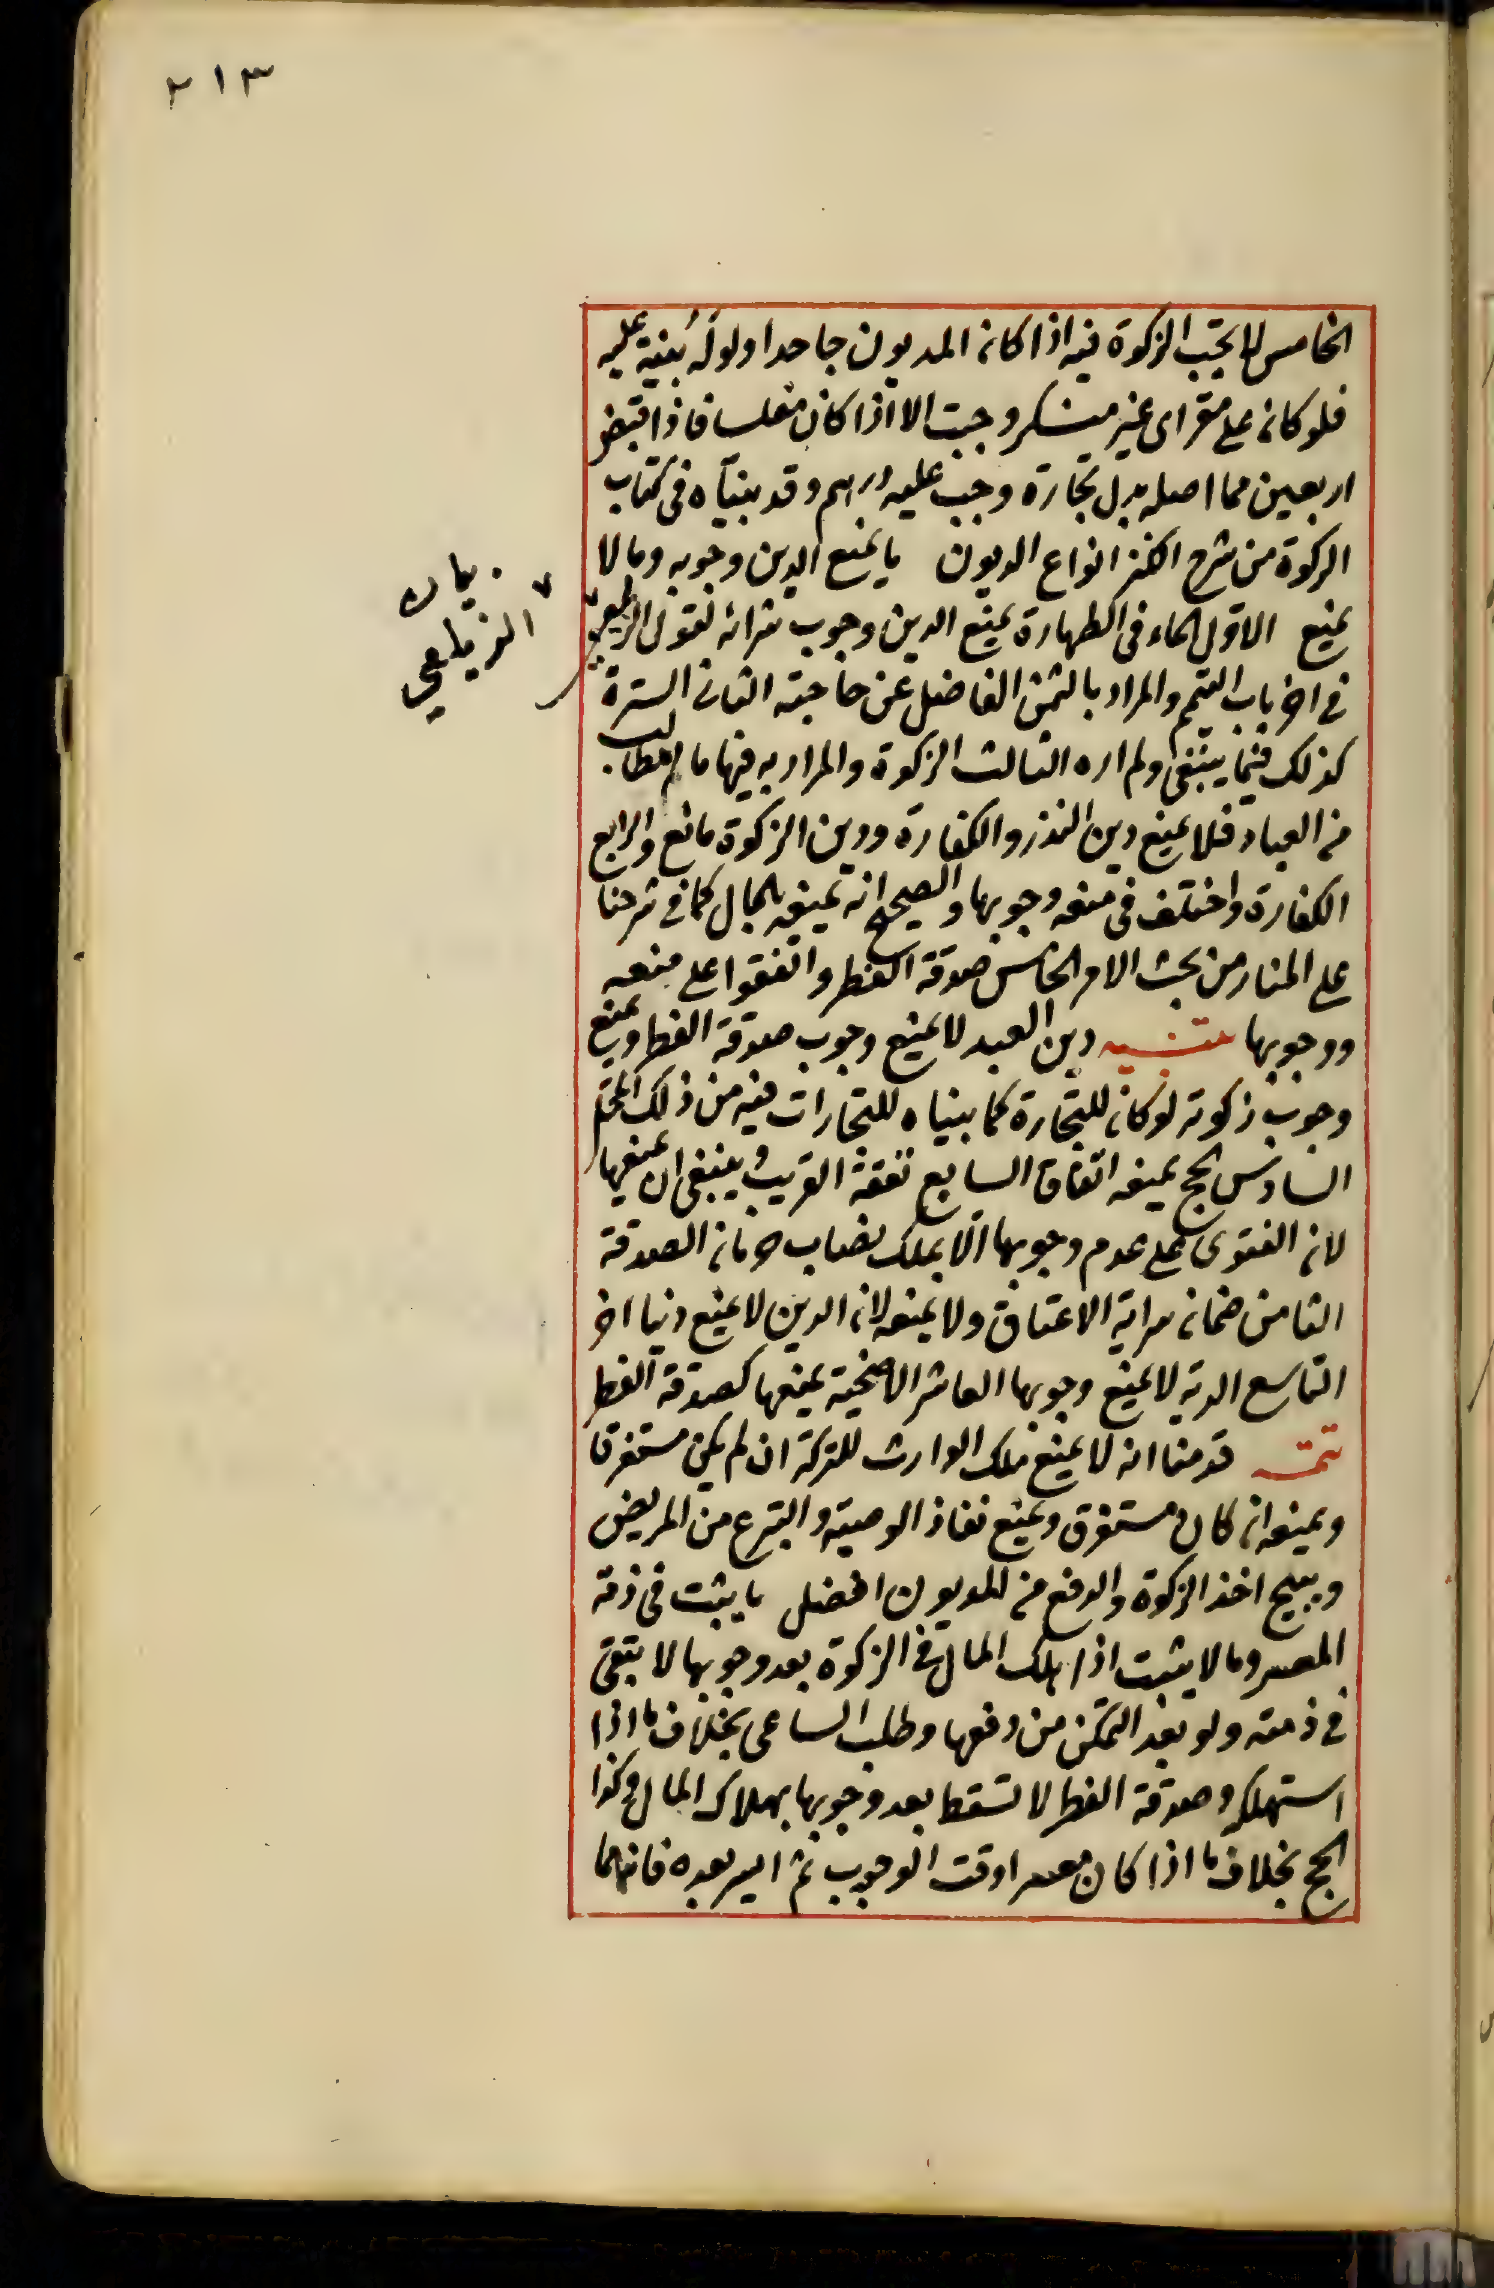 ٢١٣
الخامس لا تجب الزكوة فيه اذا كان المديون جاحدا ولو له بينة عليه
فلو كان على مقر اى غير منكر وجبت الا اذا كان مفلسا فاذا قبض
اربعين مما اصله بدل تجارة وجب عليه درهم وقد بيناه فى كتاب
الزكوة من شرح الكنز انواع الديون ما يمنع الدين وجوبه وما لا
يمنع الاول الماء فى الطهارة يمنع الدين وجوب شرائه لقول الزيلعى
بيان
الزيلعي
فى اخر باب التيمم والمراد بالثمن الفاضل عن حاجته الثانى السترة
كذلك فيما ينبغى ولم اره الثالث الزكوة والمراد به فيها ما له مطالب
من العباد فلا يمنع دين النذر والكفارة ودين الزكوة مانع والرابع
الكفارة واختلف فى منعه وجوبها والصحيح انه يمنعه بالمال كما فى شرحنا
على المنار من بحث الامر الخامس صدقة الفطر واتفقوا على منعه
ووجوبها تنبيه دين العبد لا يمنع وجوب صدقة الفطر ويمنع
وجوب زكوته لو كان للتجارة كما بيناه للتجارات فيه من ذلك المحل
السادس الحج يمنعه اتفاقا السابع نفقة القريب وينبغى ان يمنعها
لان الفتوى على عدم وجوبها الا بملك نصاب حرمان الصدقة
الثامن ضمان سراية الاعتاق ولا يمنعه لان الدين لا يمنع دينا اخر
التاسع الدية لا يمنع وجوبها العاشر الاضحية يمنعها كصدقة الفطر
تتمة قدمنا انه لا يمنع ملك الوارث للتركة ان لم يكن مستغرقا
ويمنعه ان كان مستغرق ويمنع نفاذ الوصية والتبرع من المريض
ويبيح اخذ الزكوة والدفع من المديون افضل ما يثبت فى ذمة
المعسر وما لا يثبت اذا هلك المال فى الزكوة بعد وجوبها لا تبقى
فى ذمته ولو بعد التمكن من دفعها وطلب الساعى بخلاف ما اذا
استهلكه وصدقة الفطر لا تسقط بعد وجوبها بهلاك المال وكذا
الحج بخلاف ما اذا كان معسرا وقت الوجوب ثم ايسر بعده فانهما